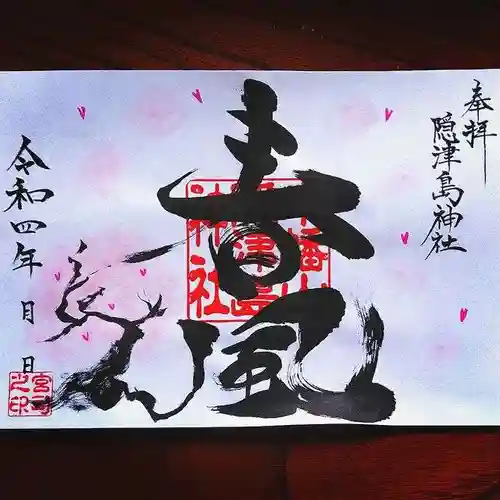 奉拝
隠津島神社
春風
令和四年 月 日
宮司之印